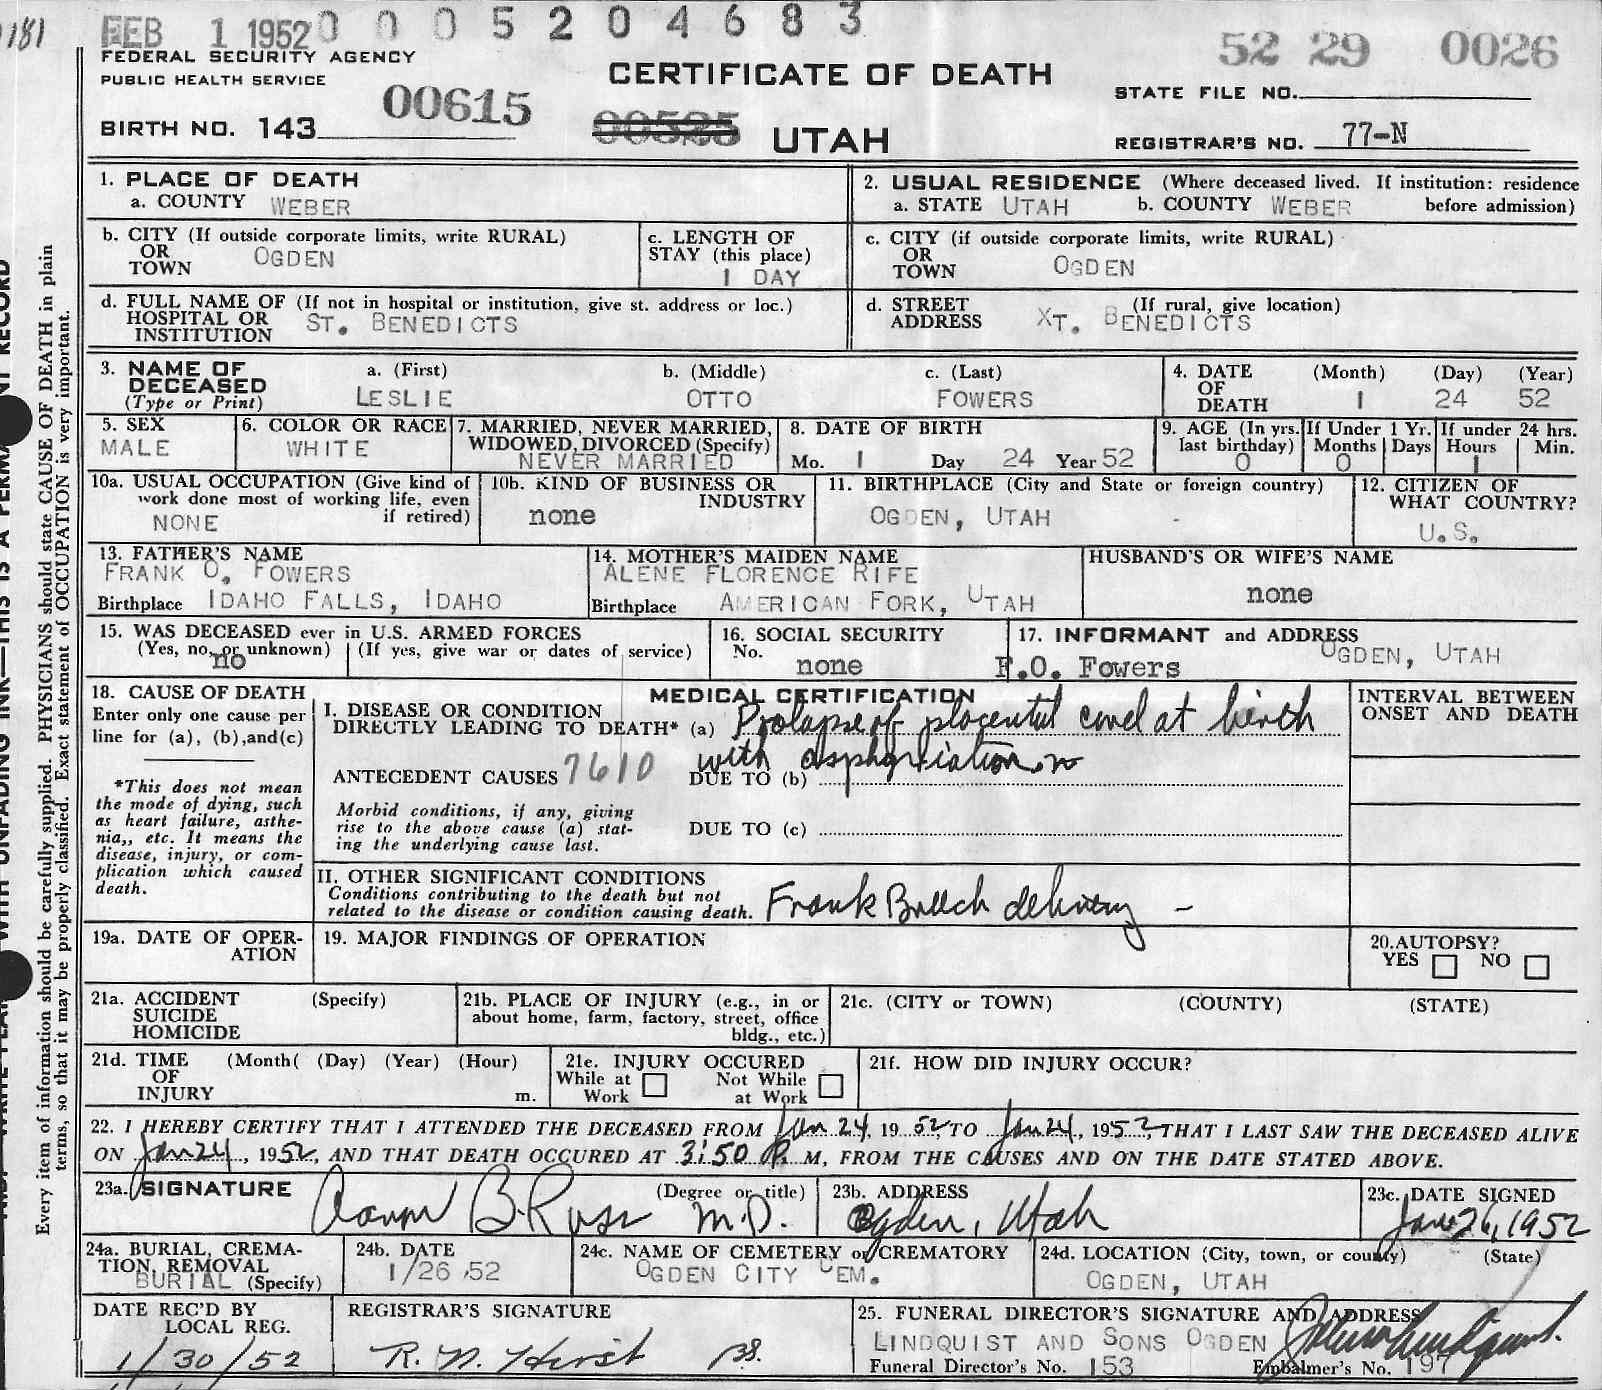 181
FEB 1 1952 0 0 0 5 2 0 4 6 8 3
52 29 0026
FEDERAL SECURITY AGENCY
PUBLIC HEALTH SERVICE
CERTIFICATE OF DEATH
STATE FILE NO.
00615
00525
BIRTH NO. 143
UTAH
REGISTRAR'S NO. 77-N
1. PLACE OF DEATH
a. COUNTY WEBER
2. USUAL RESIDENCE (Where deceased lived. If institution: residence
a. STATE UTAH b. COUNTY WEBER before admission)
b. CITY (If outside corporate limits, write RURAL)
OR
TOWN OGDEN
c. LENGTH OF
STAY (this place)
1 DAY
c. CITY (if outside corporate limits, write RURAL)
OR
TOWN OGDEN
d. FULL NAME OF (If not in hospital or institution, give st. address or loc.)
HOSPITAL OR
INSTITUTION ST. BENEDICTS
d. STREET (If rural, give location)
ADDRESS XT. BENEDICTS
3. NAME OF
DECEASED
(Type or Print)
a. (First)
LESLIE
b. (Middle)
OTTO
c. (Last)
FOWERS
4. DATE
OF
DEATH
(Month) (Day) (Year)
1 24 52
5. SEX
MALE
6. COLOR OR RACE
WHITE
7. MARRIED, NEVER MARRIED,
WIDOWED, DIVORCED (Specify)
NEVER MARRIED
8. DATE OF BIRTH
Mo. 1 Day 24 Year 52
9. AGE (In yrs.
last birthday)
0
If Under 1 Yr.
Months Days
0
If under 24 hrs.
Hours Min.
1
10a. USUAL OCCUPATION (Give kind of
work done most of working life, even
if retired)
NONE
10b. KIND OF BUSINESS OR
INDUSTRY
none
11. BIRTHPLACE (City and State or foreign country)
OGDEN, UTAH
12. CITIZEN OF
WHAT COUNTRY?
U.S.
13. FATHER'S NAME
FRANK O. FOWERS
Birthplace IDAHO FALLS, IDAHO
14. MOTHER'S MAIDEN NAME
ALENE FLORENCE RIFE
Birthplace AMERICAN FORK, UTAH
HUSBAND'S OR WIFE'S NAME
none
15. WAS DECEASED ever in U.S. ARMED FORCES
(Yes, no, or unknown) (If yes, give war or dates of service)
no
16. SOCIAL SECURITY
No.
none
17. INFORMANT and ADDRESS
F.O. Fowers OGDEN, UTAH
18. CAUSE OF DEATH
Enter only one cause per
line for (a), (b), and (c)
*This does not mean
the mode of dying, such
as heart failure, asthe-
nia,, etc. It means the
disease, injury, or com-
plication which caused
death.
MEDICAL CERTIFICATION
I. DISEASE OR CONDITION
DIRECTLY LEADING TO DEATH* (a) Prolapse of placental cord at birth
with asphyxiation
ANTECEDENT CAUSES 7610 DUE TO (b)
Morbid conditions, if any, giving
rise to the above cause (a) stat-
ing the underlying cause last.
DUE TO (c)
II. OTHER SIGNIFICANT CONDITIONS
Conditions contributing to the death but not
related to the disease or condition causing death. Frank Breech delivery -
INTERVAL BETWEEN
ONSET AND DEATH
19a. DATE OF OPER-
ATION
19. MAJOR FINDINGS OF OPERATION
20. AUTOPSY?
YES NO
21a. ACCIDENT (Specify)
SUICIDE
HOMICIDE
21b. PLACE OF INJURY (e.g., in or
about home, farm, factory, street, office
bldg., etc.)
21c. (CITY or TOWN) (COUNTY) (STATE)
21d. TIME (Month( (Day) (Year) (Hour)
OF
INJURY m.
21e. INJURY OCCURED
While at Not While
Work at Work
21f. HOW DID INJURY OCCUR?
22. I HEREBY CERTIFY THAT I ATTENDED THE DECEASED FROM Jan 24, 19 52, TO Jan 24, 1952, THAT I LAST SAW THE DECEASED ALIVE
ON Jan 24, 1952, AND THAT DEATH OCCURED AT 3:50 P. M, FROM THE CAUSES AND ON THE DATE STATED ABOVE.
23a. SIGNATURE (Degree or title)
Aaron B. Ross M.D.
23b. ADDRESS
Ogden, Utah
23c. DATE SIGNED
Jan 26, 1952
24a. BURIAL, CREMA-
TION, REMOVAL
BURIAL (Specify)
24b. DATE
1/26 52
24c. NAME OF CEMETERY or CREMATORY
OGDEN CITY CEM.
24d. LOCATION (City, town, or county) (State)
OGDEN, UTAH
DATE REC'D BY
LOCAL REG.
1/30/52
REGISTRAR'S SIGNATURE
R. N. Hirst
25. FUNERAL DIRECTOR'S SIGNATURE AND ADDRESS
LINDQUIST AND SONS OGDEN
Funeral Director's No. 153 Embalmer's No. 197
Every item of information should be carefully supplied. PHYSICIANS should state CAUSE OF DEATH in plain
terms, so that it may be properly classified. Exact statement of OCCUPATION is very important.